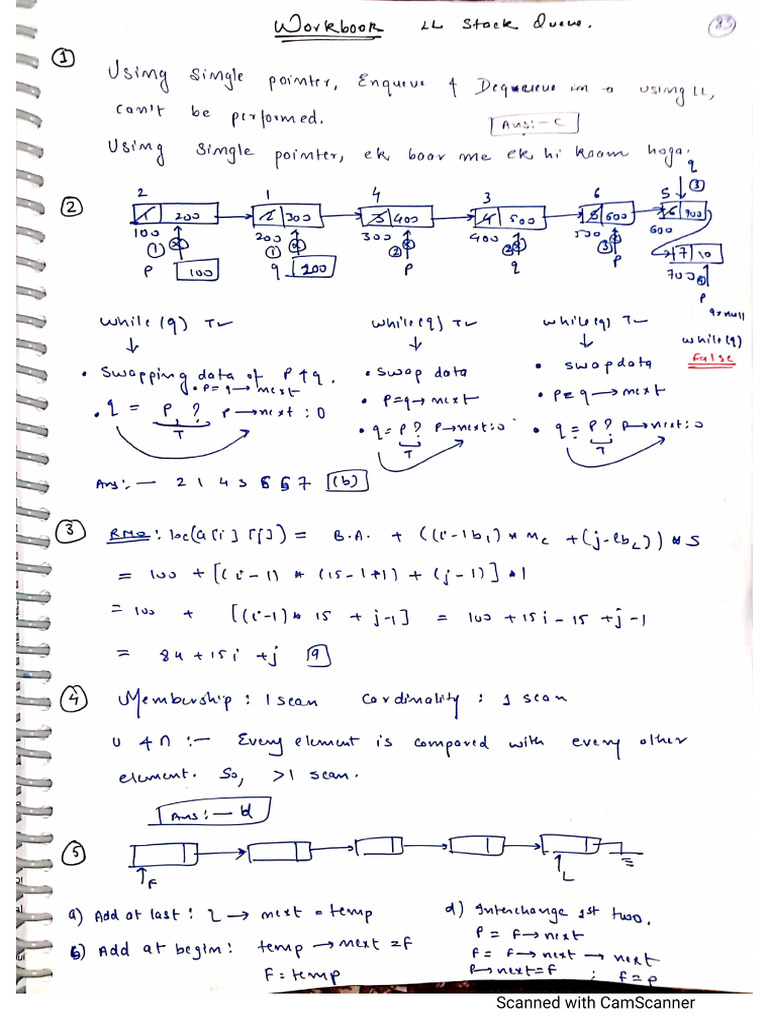 Workbook LL Stack Queue. 83
① Using single pointer, Enqueue & Dequeue in a using LL,
can't be performed. Ans:- C
Using single pointer, ek baar me ek hi kaam hoga.
q
②
2 1 4 3 6 5 ③
1 200 2 300 3 400 4 500 5 600 6 700
100 200 300 400 500 600
7 10
① ① ② ② ③ 700
p 100 q 200 p q p p
q=null
while(q) T while(q) T while(q) T while(q)
False
• Swapping data of p & q. • swap data • swap data
• p = q → next • p = q → next • p = q → next
• q = p ? p → next : 0 • q = p ? p → next : 0 • q = p ? p → next : 0
T T T
Ans:- 2 1 4 3 6 5 7 (b)
③ RMO : loc(a[i][j]) = B.A. + ((i-lb₁) * Nc + (j-lb₂)) * S
= 100 + [(i-1) * (15-1+1) + (j-1)] * 1
= 100 + [(i-1) * 15 + j-1] = 100 + 15i - 15 + j - 1
= 84 + 15i + j a
④ Membership : 1 scan Cardinality : 1 scan
U & ∩ :- Every element is compared with every other
element. So, >1 scan.
Ans:- d
⑤
F L
a) Add at last : L → next = temp d) Interchange 1st two.
P = F → next
b) Add at begin : temp → next = F F = F → next → next
F = temp P → next = F ; F = P
Scanned with CamScanner